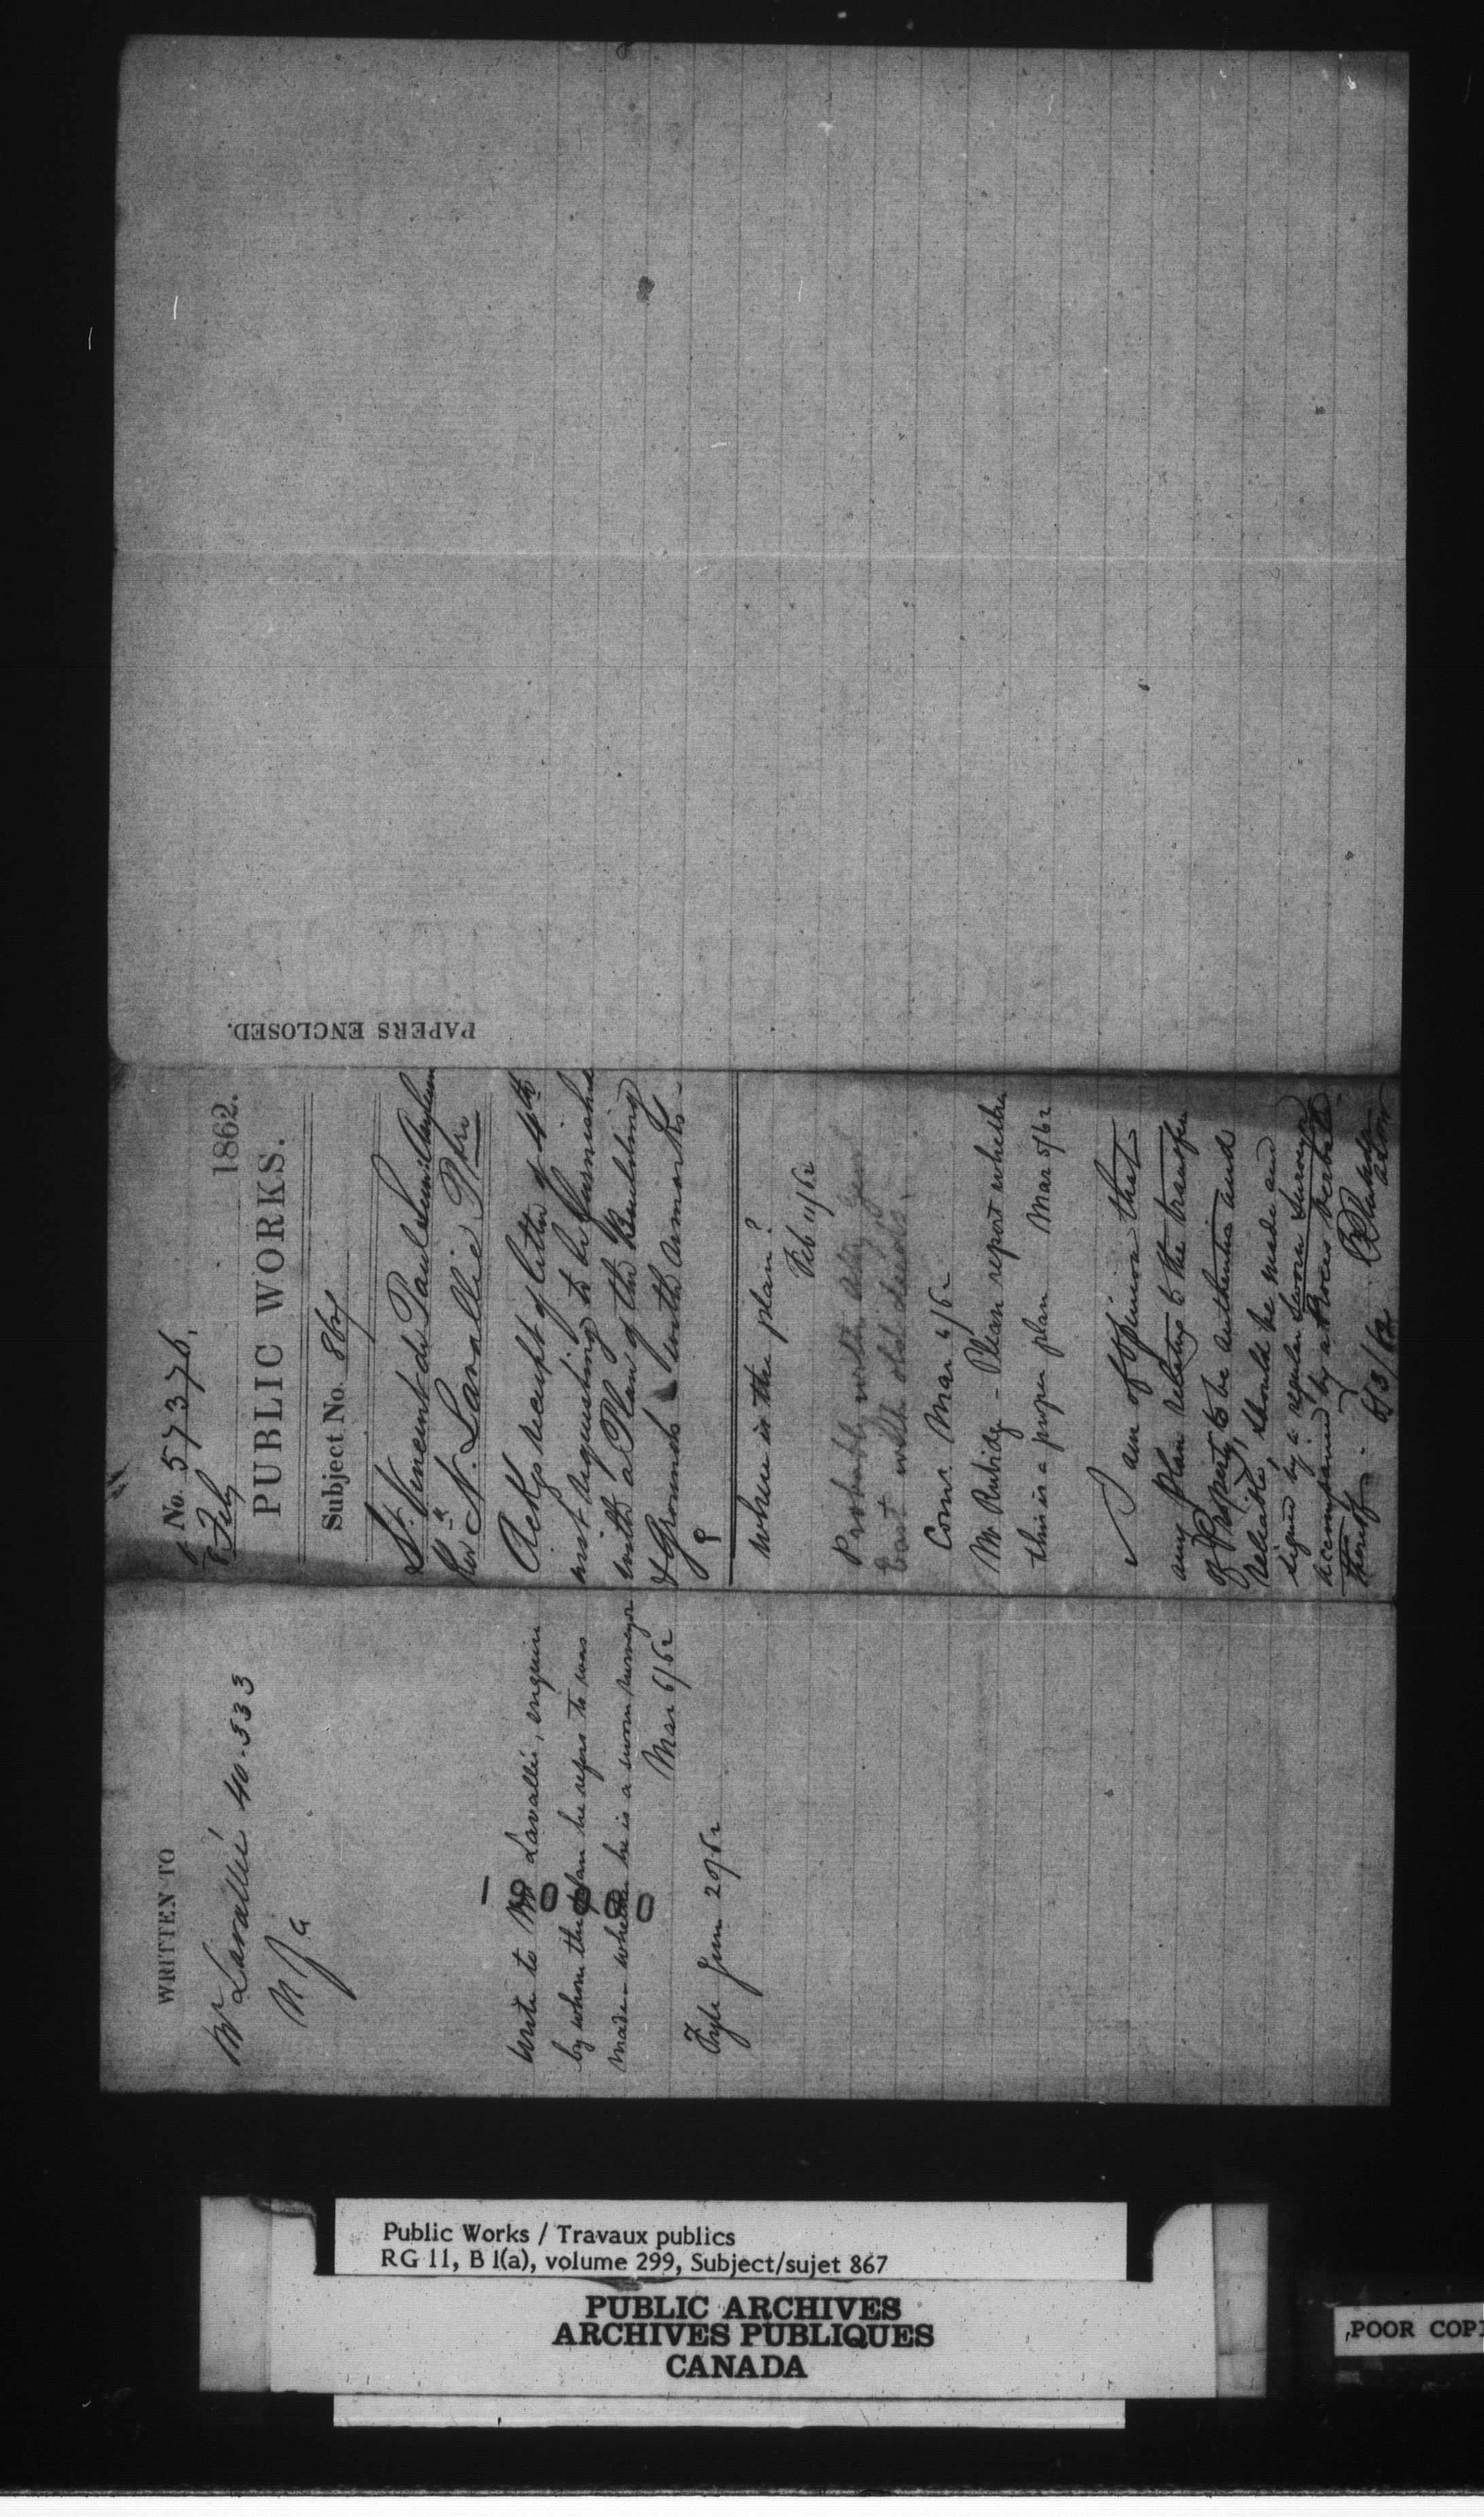 No. 57376.
8 Feby 1862.
PUBLIC WORKS.
Subject No. 867
St. Vincent de Paul Asylum
Revd N. Lavallée Ptre
Ackgs receipt of letter of 4th
inst requesting to be furnished
with a Plan of the Building
& Grounds with remarks
where is the plan?
Feb 11/62
Probably with Atty Genl
East with old deeds.
Comr. Mar 4/62
Mr Rubidge - Please report whether
this is a proper plan Mar 5/62
I am of opinion that
any plan relating to the transfer
of Property, to be authentic and
reliable, should be made and
signed by a regular Sworn Surveyor
accompanied by a Procès verbal
thereof.
WRITTEN TO
Mr Lavallée 40-533
Write to Mr Lavallée, enquire
by whom the plan he refers to was
made - whether he is a sworn surveyor
Mar 6/62
Fyle Jun 20/62
PAPERS ENCLOSED.
Public Works / Travaux publics
RG 11, B 1(a), volume 299, Subject/sujet 867
PUBLIC ARCHIVES
ARCHIVES PUBLIQUES
CANADA
POOR COPI